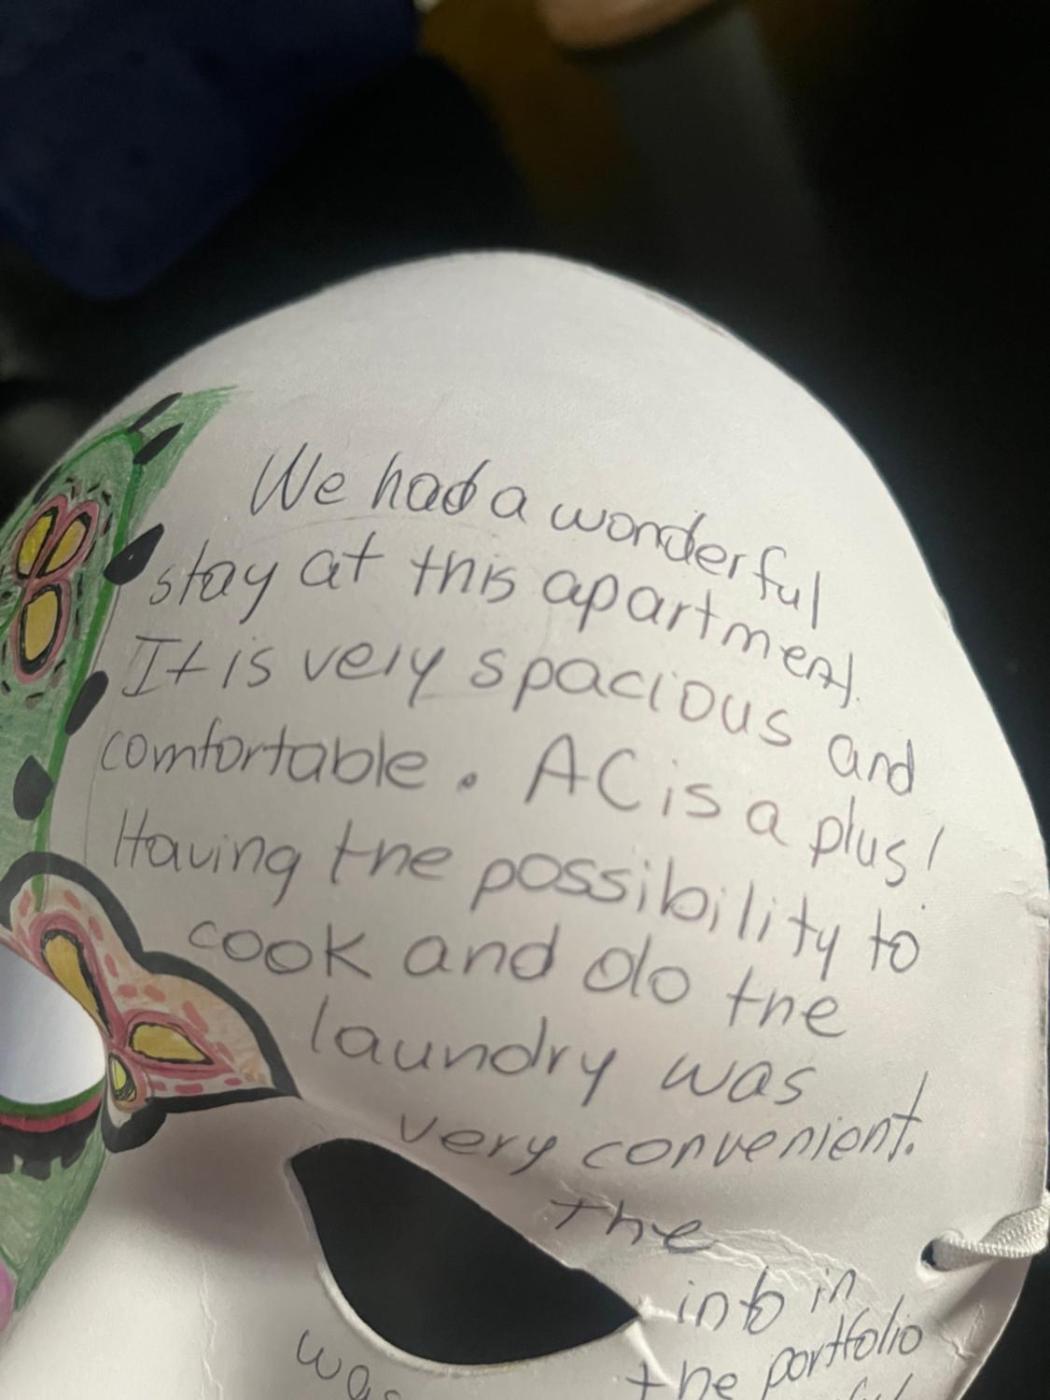 We had a wonderful
stay at this apartment.
It is very spacious and
comfortable. AC is a plus!
Having the possibility to
cook and do the
laundry was
very convenient.
the
info in
the portfolio
was